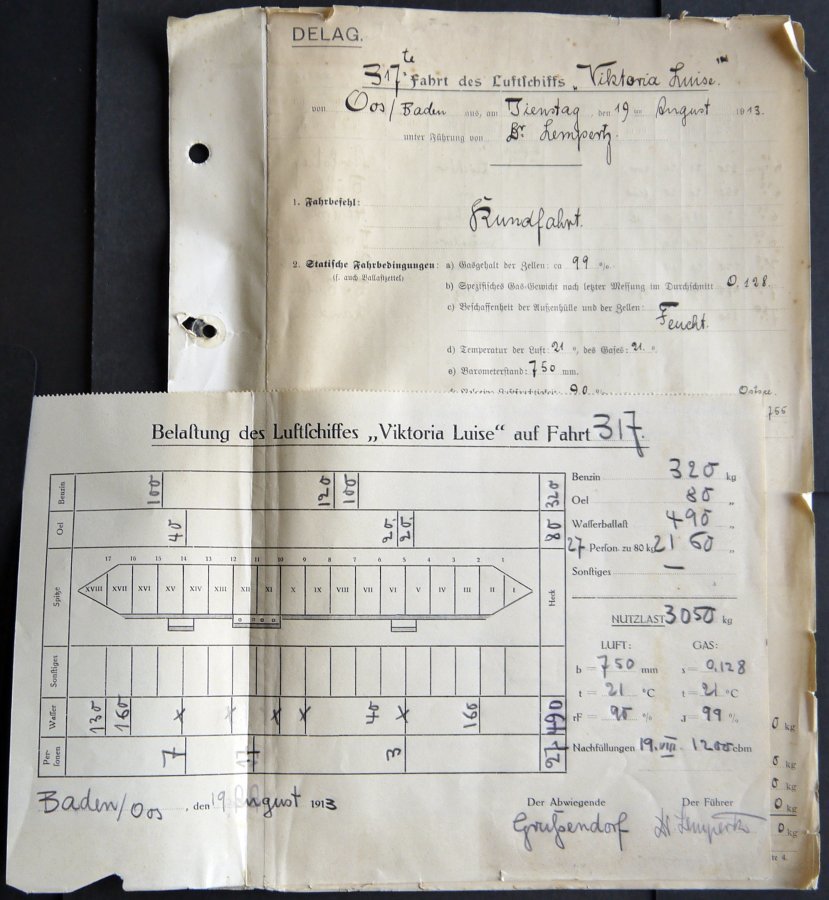 DELAG.
317te Fahrt des Luftschiffs „Viktoria Luise“.
von Oos/Baden aus, am Dienstag, den 19ten August 1913.
unter Führung von Dr. Lempertz.
1. Fahrbefehl:
Rundfahrt.
2. Statische Fahrbedingungen: a) Gasgehalt der Zellen: ca 99 %.
(s. auch Ballastzettel)
b) Spezifisches Gas-Gewicht nach letzter Messung im Durchschnitt 0,128
c) Beschaffenheit der Außenhülle und der Zellen:
Feucht.
d) Temperatur der Luft: 21 °, des Gases: 21 °.
e) Barometerstand: 750 mm.
90 %
755
Belastung des Luftschiffes „Viktoria Luise“ auf Fahrt 317.
Benzin 100 120 100 320
Oel 40 20. 20. 80
Spitze
17 16 15 14 13 12 11 10 9 8 7 6 5 4 3 2 1
XVIII XVII XVI XV XIV XIII XII XI X IX VIII VII VI V IV III II I
Heck
Sonstiges
Wasser 130 160 x x x x 40 x 160 490
Personen 7 17 3 27
Benzin 320 kg
Oel 80 „
Wasserballast 490 „
27 Person. zu 80 kg 2160 „
Sonstiges —
NUTZLAST 3050 kg
LUFT: GAS:
b = 750 mm s = 0,128
t = 21 °C t = 21 °C
rF = 90 % J = 99 %
Nachfüllungen 19. VIII. 1200 cbm
Baden/Oos, den 19 August 1913
Der Abwiegende Der Führer
Grußendorf Dr. Lempertz
0 kg
kg
0 kg
0 kg
0 kg
te 4.